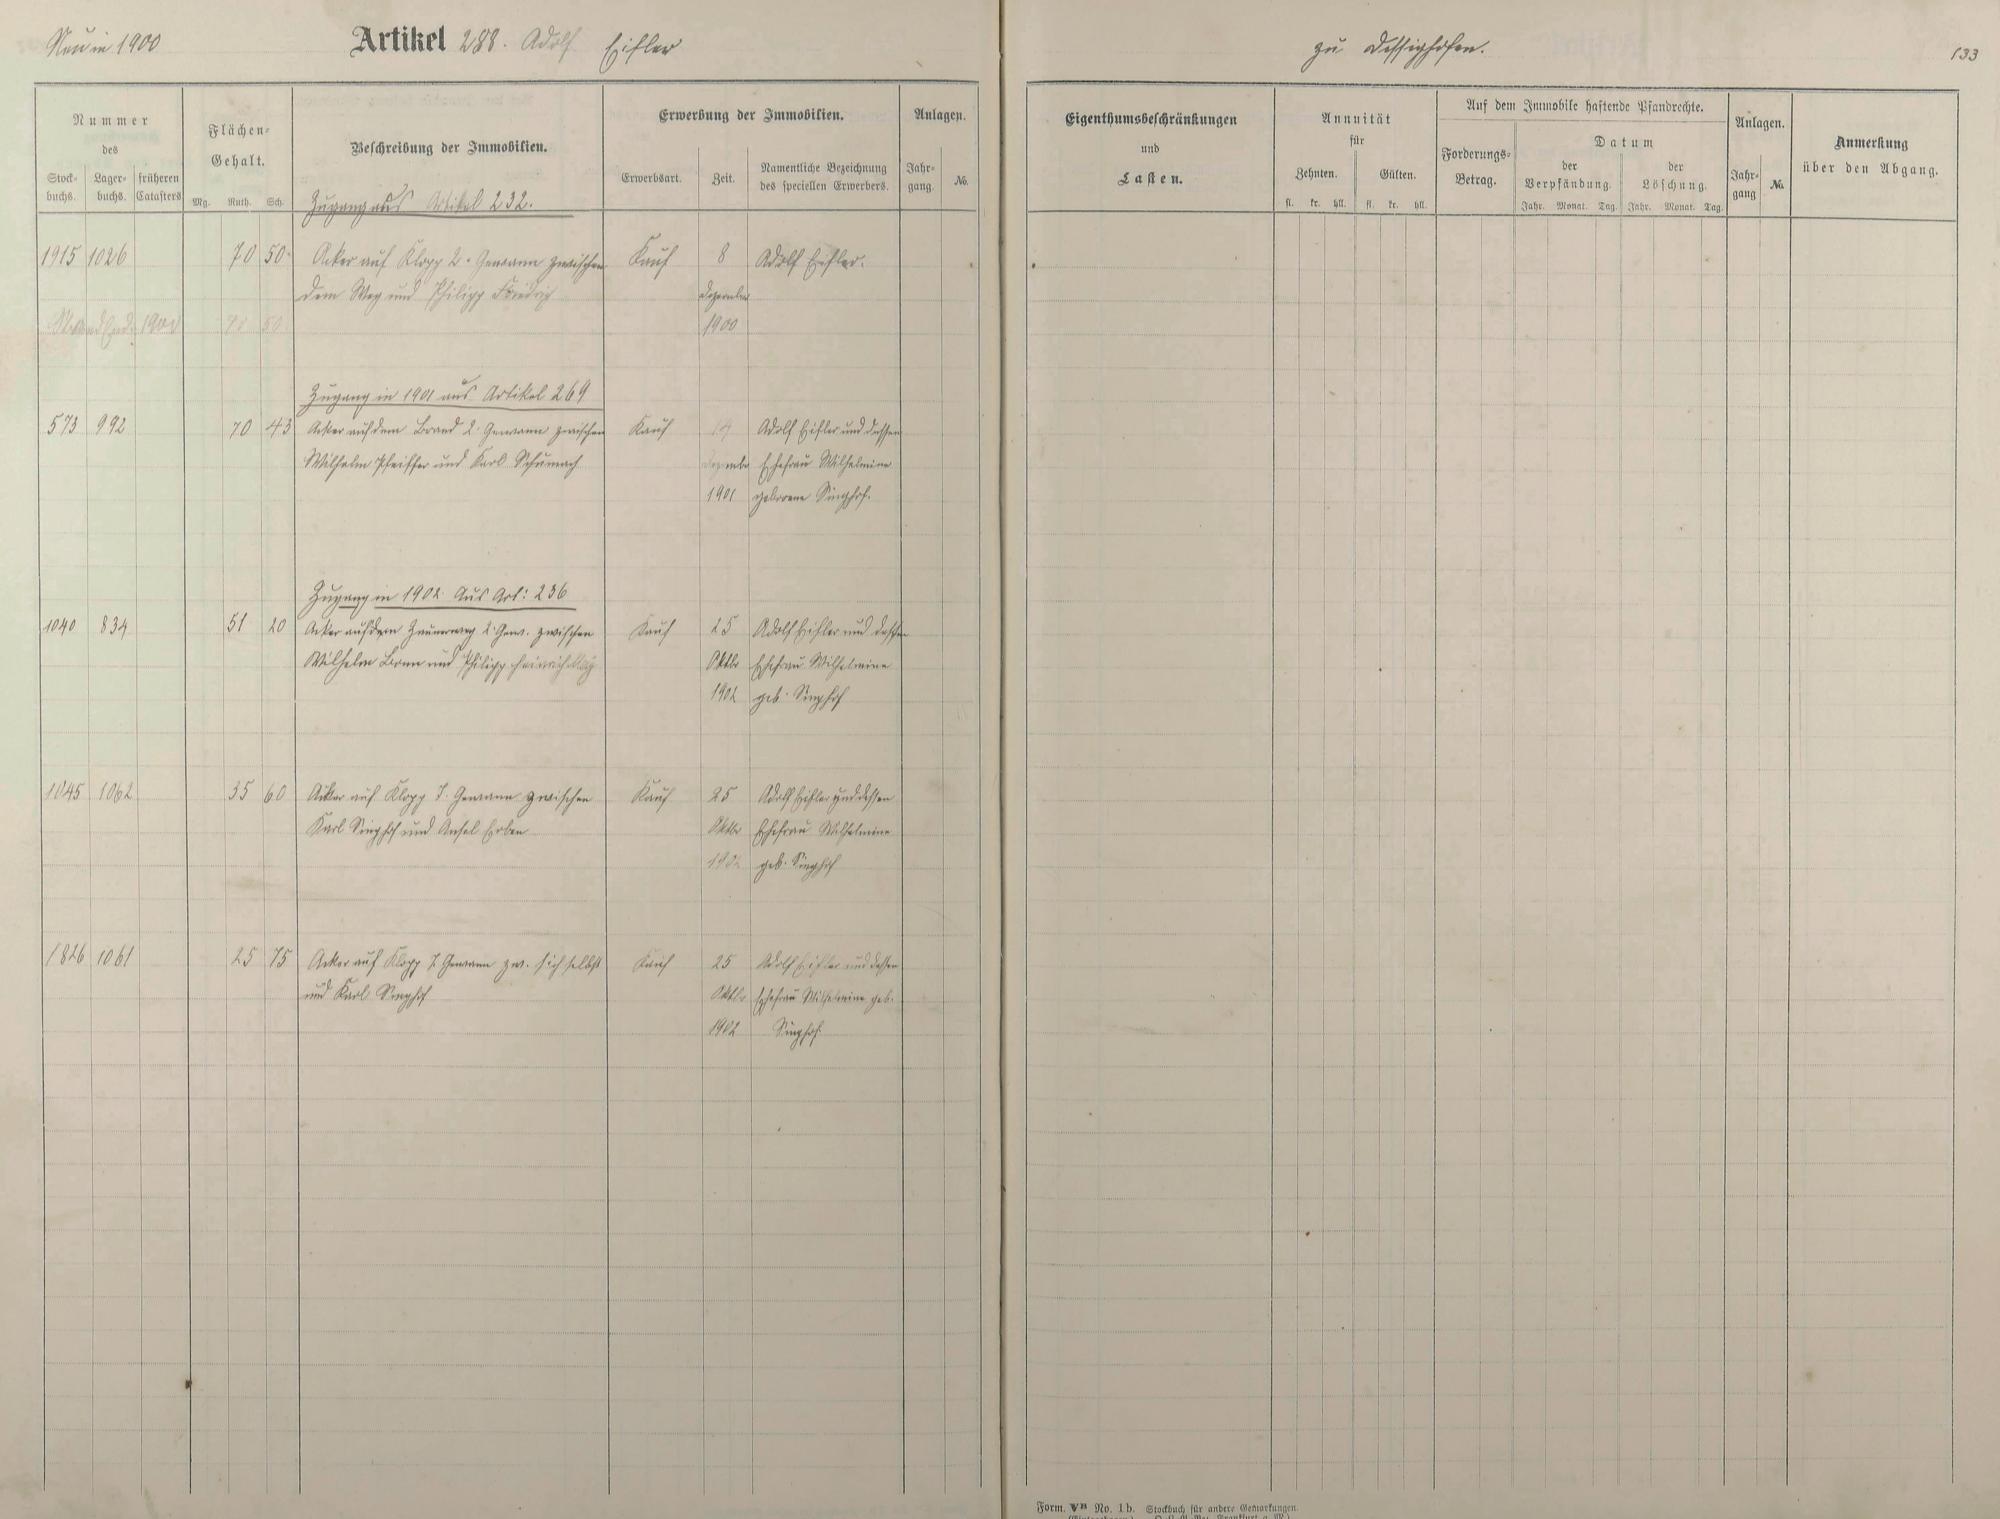 Neu in 1900
Artikel 288. Adolf Eifler
zu Dessighofen.
133
Nummer
des
Stock-
buchs.
Lager-
buchs.
früheren
Catasters
Flächen-
Gehalt.
Mg. Ruth. Sch.
Beschreibung der Immobilien.
Erwerbung der Immobilien.
Erwerbsart.
Zeit.
Namentliche Bezeichnung
des speciellen Erwerbers.
Anlagen.
Jahr-
gang.
No.
Eigenthumsbeschränkungen
und
Lasten.
Annuität
für
Zehnten.
Gülten.
fl. kr. hll. fl. kr. hll.
Auf dem Immobile haftende Pfandrechte.
Forderungs-
Betrag.
Datum
der
Verpfändung.
der
Löschung.
Jahr. Monat. Tag. Jahr. Monat. Tag.
Anlagen.
Jahr-
gang
No.
Anmerkung
über den Abgang.
Zugang aus Artikel 232.
1915 1026 70 50 Acker auf Klopp 2. Gewann zwischen Kauf 8 Adolf Eifler.
dem Weg und Philipp Friedrich Dezember
1900 70 50 1900
Zugang in 1901 aus Artikel 269
573 992 70 43 Acker auf dem Brand 2. Gewann zwischen Kauf 14 Adolf Eifler und dessen
Wilhelm Pfeiffer und Karl Schumach Dezember Ehefrau Wilhelmine
1901 geborene Singhof.
Zugang in 1902 aus Art: 236
1040 834 51 20 Acker auf dem 2. Gew. zwischen Kauf 25 Adolf Eifler und dessen
Wilhelm Bonn und Philipp Heinrich May Oktbr Ehefrau Wilhelmine
1902 geb. Singhof
1045 1062 35 60 Acker auf Klopp 7. Gewann zwischen Kauf 25 Adolf Eifler und dessen
Karl Singhof und Ansel Erben Oktbr Ehefrau Wilhelmine
1902 geb. Singhof
1826 1061 25 75 Acker auf Klopp 7. Gewann zw. sich selbst Kauf 25 Adolf Eifler und dessen
und Karl Singhof Oktbr Ehefrau Wilhelmine geb.
1902 Singhof
Form. VB No. 1 b. Stockbuch für andere Gemarkungen.